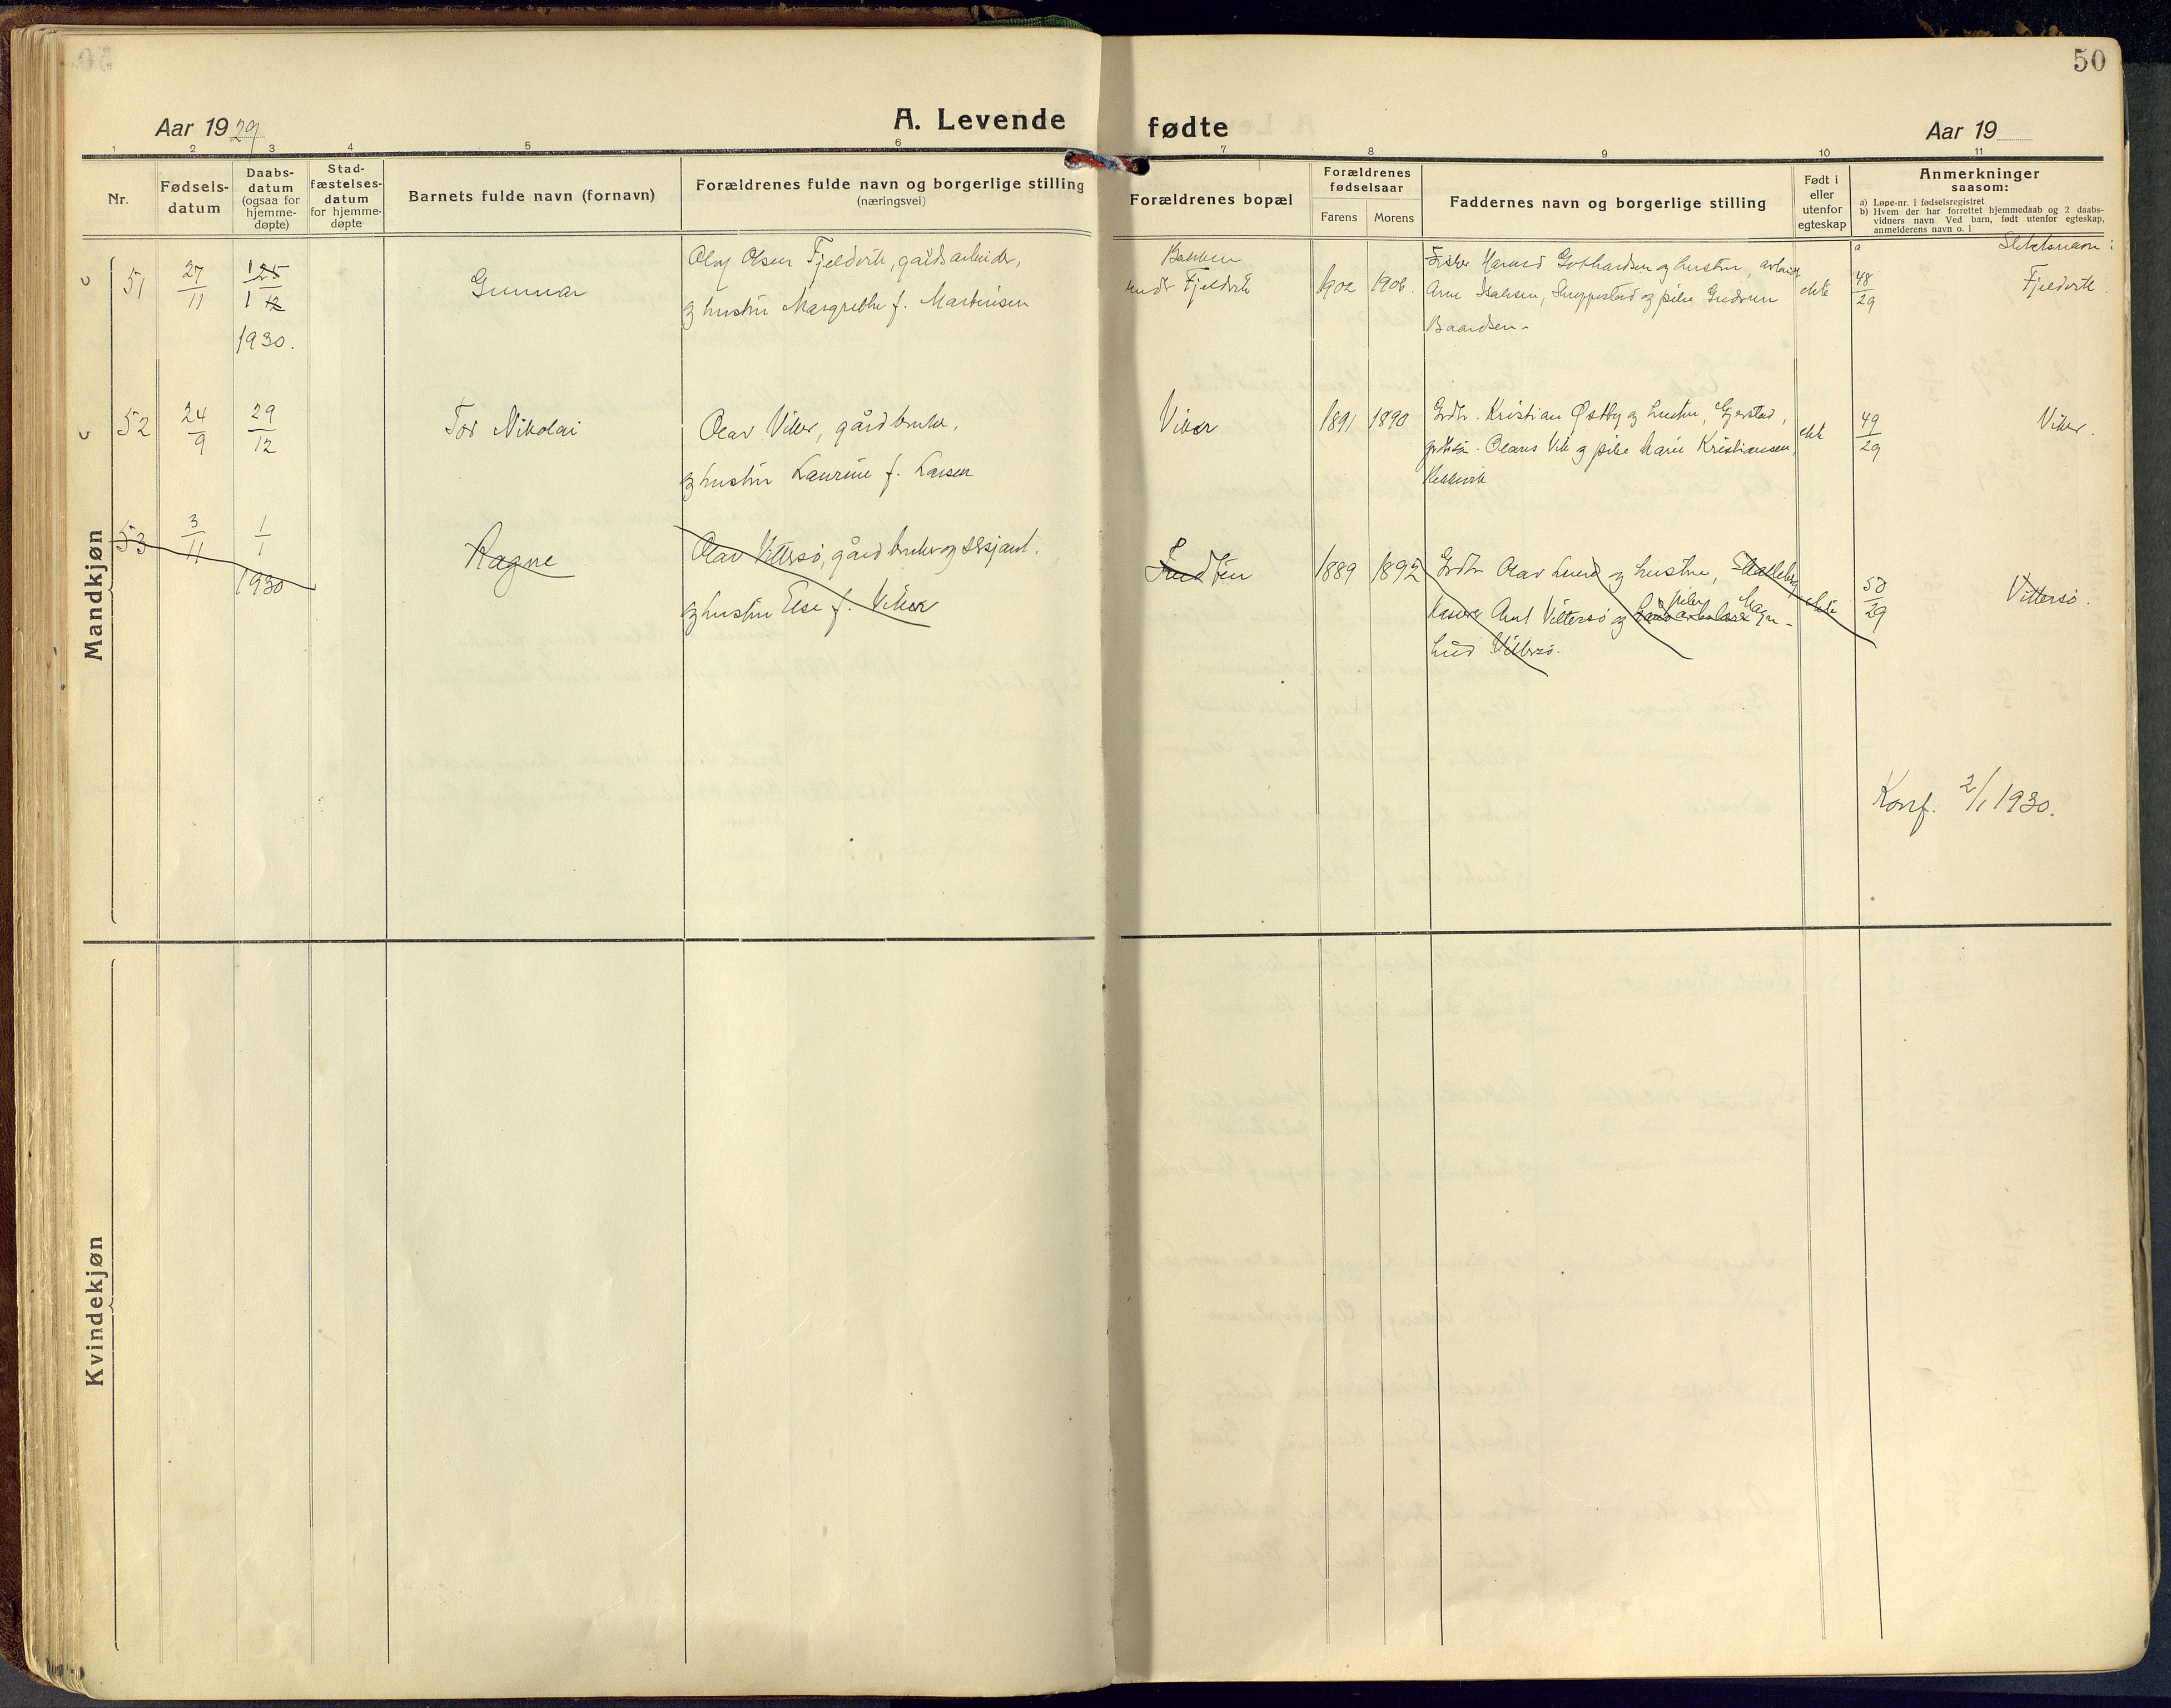 50
Aar 1929
A. Levende fødte
Aar 19
1 2 3 4 5 6 7 8 9 10 11
Nr.
Fødsels-
datum
Daabs-
datum
(ogsaa for
hjemme-
døpte)
Stad-
fæstelses-
datum
for hjemme-
døpte
Barnets fulde navn (fornavn)
Forældrenes fulde navn og borgerlige stilling
(næringsvei)
Forældrenes bopæl
Forældrenes
fødselsaar
Farens Morens
Faddernes navn og borgerlige stilling
Født i
eller
utenfor
egteskap
Anmerkninger
saasom:
a) Løpe-nr. i fødselsregistret
b) Hvem der har forrettet hjemmedaab og 2 daabs-
vidners navn. Ved barn, født utenfor egteskap,
anmelderens navn o. l
Mandkjøn
51
27/11
1/1 25/12
1930.
Gunnar
Olaf Olsen Fjeldvik, gårdsarbeider,
og hustru Margrethe f. Martinsen
Bakken
under Fjeldvik
1902 1906.
Fisker Harald Gothardsen og hustru, arbeid.
Arne Isaksen, og pike Gudrun
Baardsen.
ekte
a
48/29
Slektsnavn:
Fjeldvik.
52
24/9
29/12
Tor Nikolai
Olav Viker, gårdbruker,
og hustru Laurine f. Larsen
Viker
1891 1890
Grdbr. Kristian Østby og hustru, Gjerstad,
Olaus Vik og pike Marie Kristiansen,
ekte
49/29
Viker.
53
3/11
1/1
1930
Ragne
Olav Vittersø, gårdbruker og sersjant.
og hustru Else f. Viker
1889 1892
Grdbr. Olav Lund og hustru,
Vittersø og pike Magn-
hild Vittersø.
ekte
50/29
Vittersø.
Konf. 2/1 1930.
Kvindekjøn